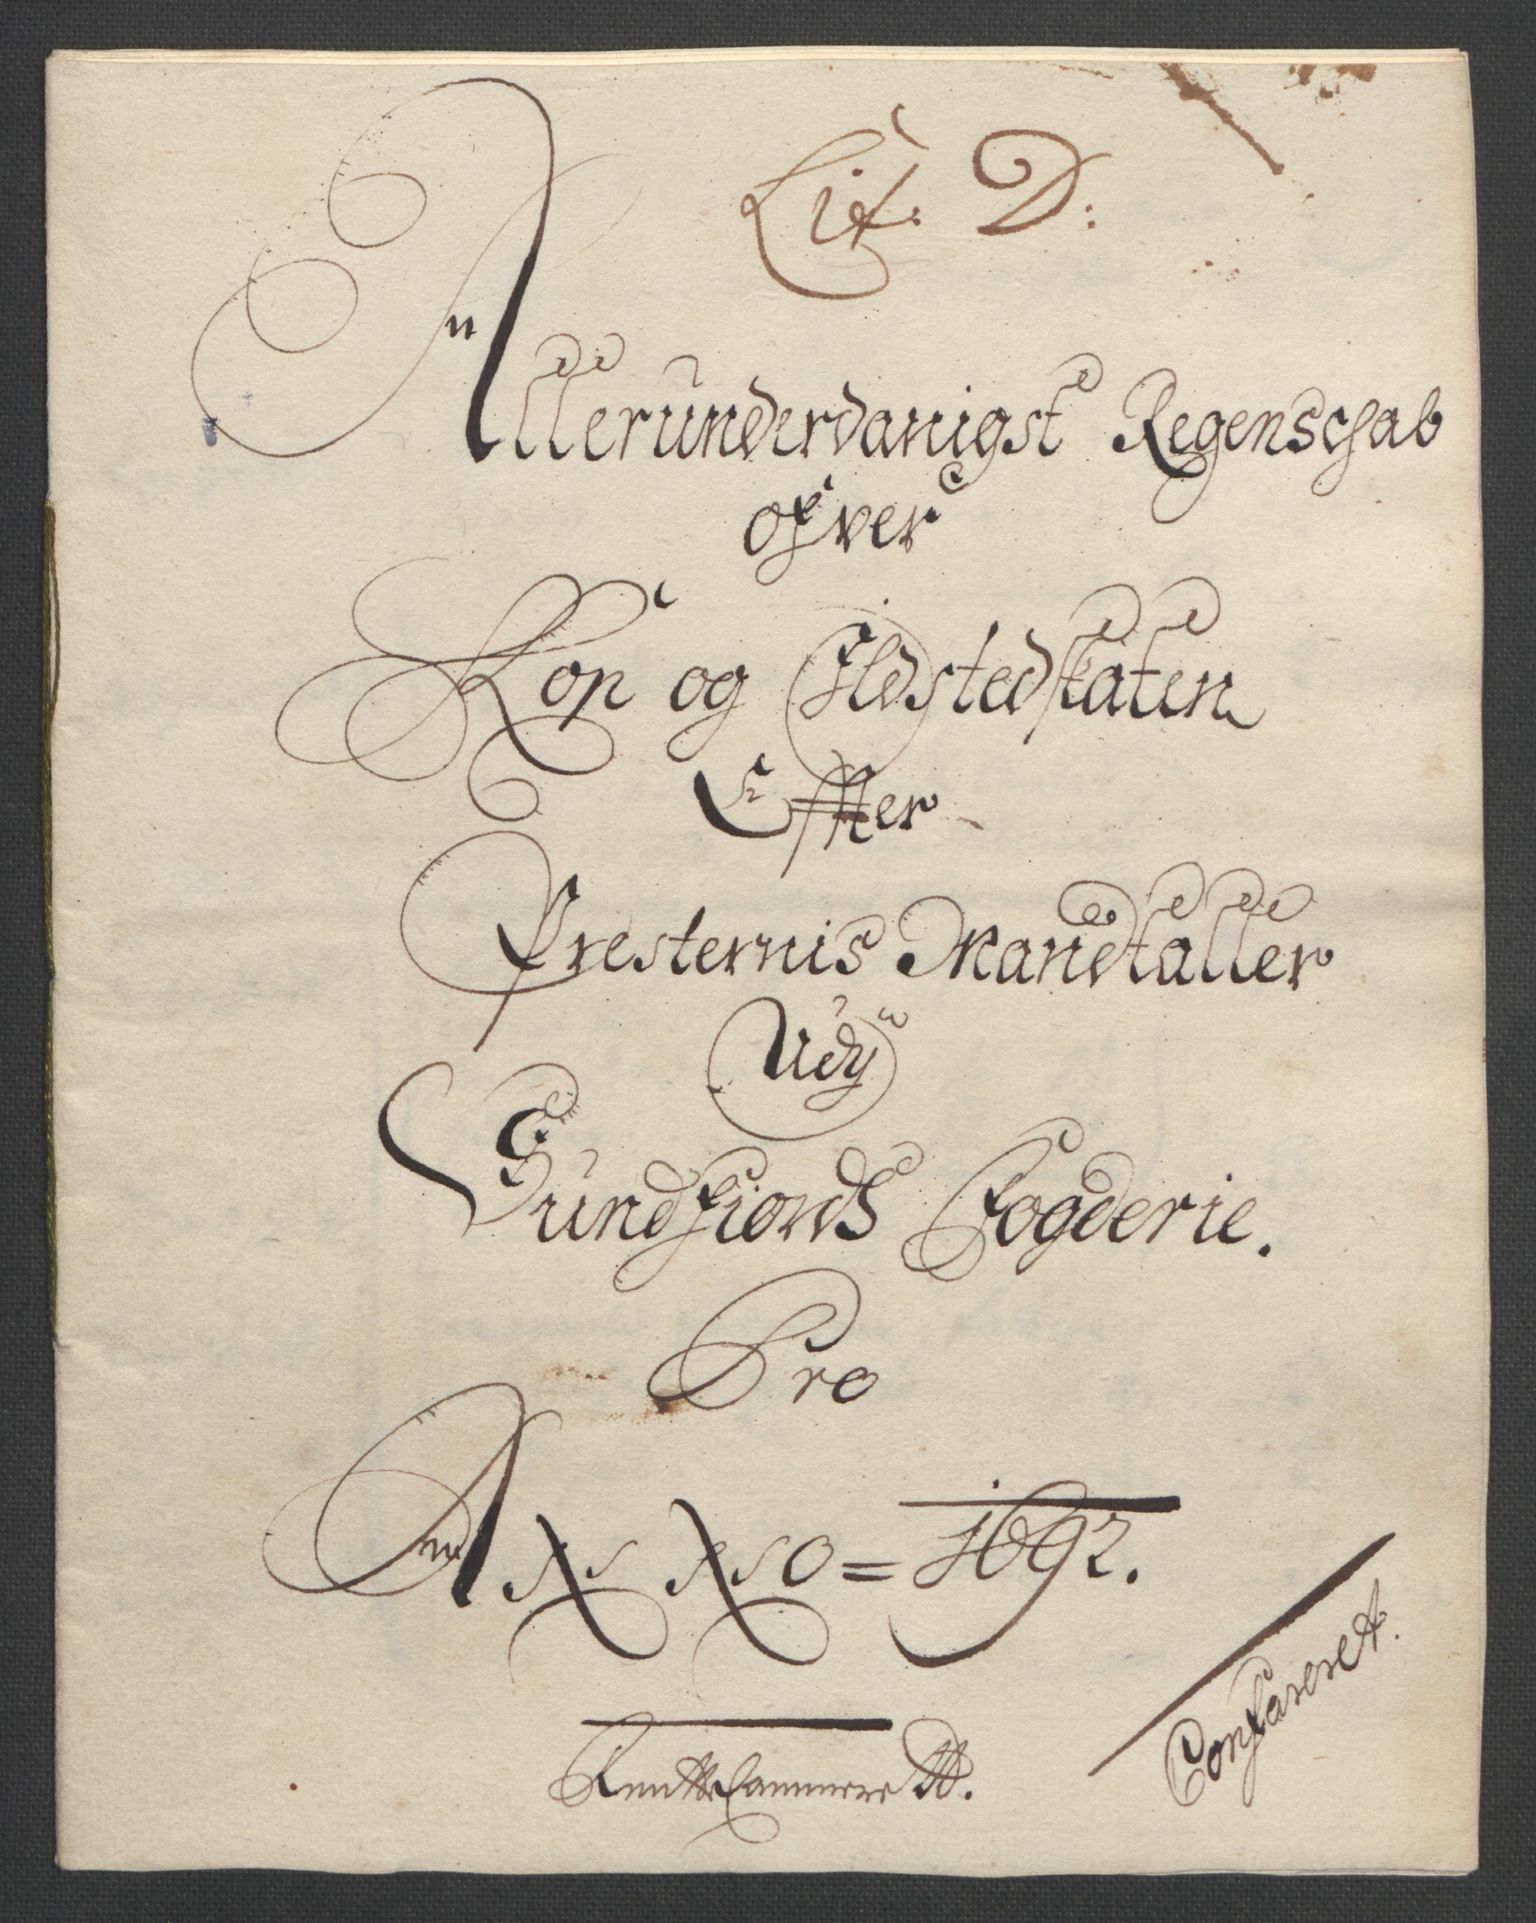 Lit. D:
Allerunderdanigst Regenschab
ofver
Kop og Ildstedskaten
Effter
Presternis Mandtaller
Udj
Sundfiords Fogderie.
Pro
Anno = 1692.
RentteCammerett.
Confareret.